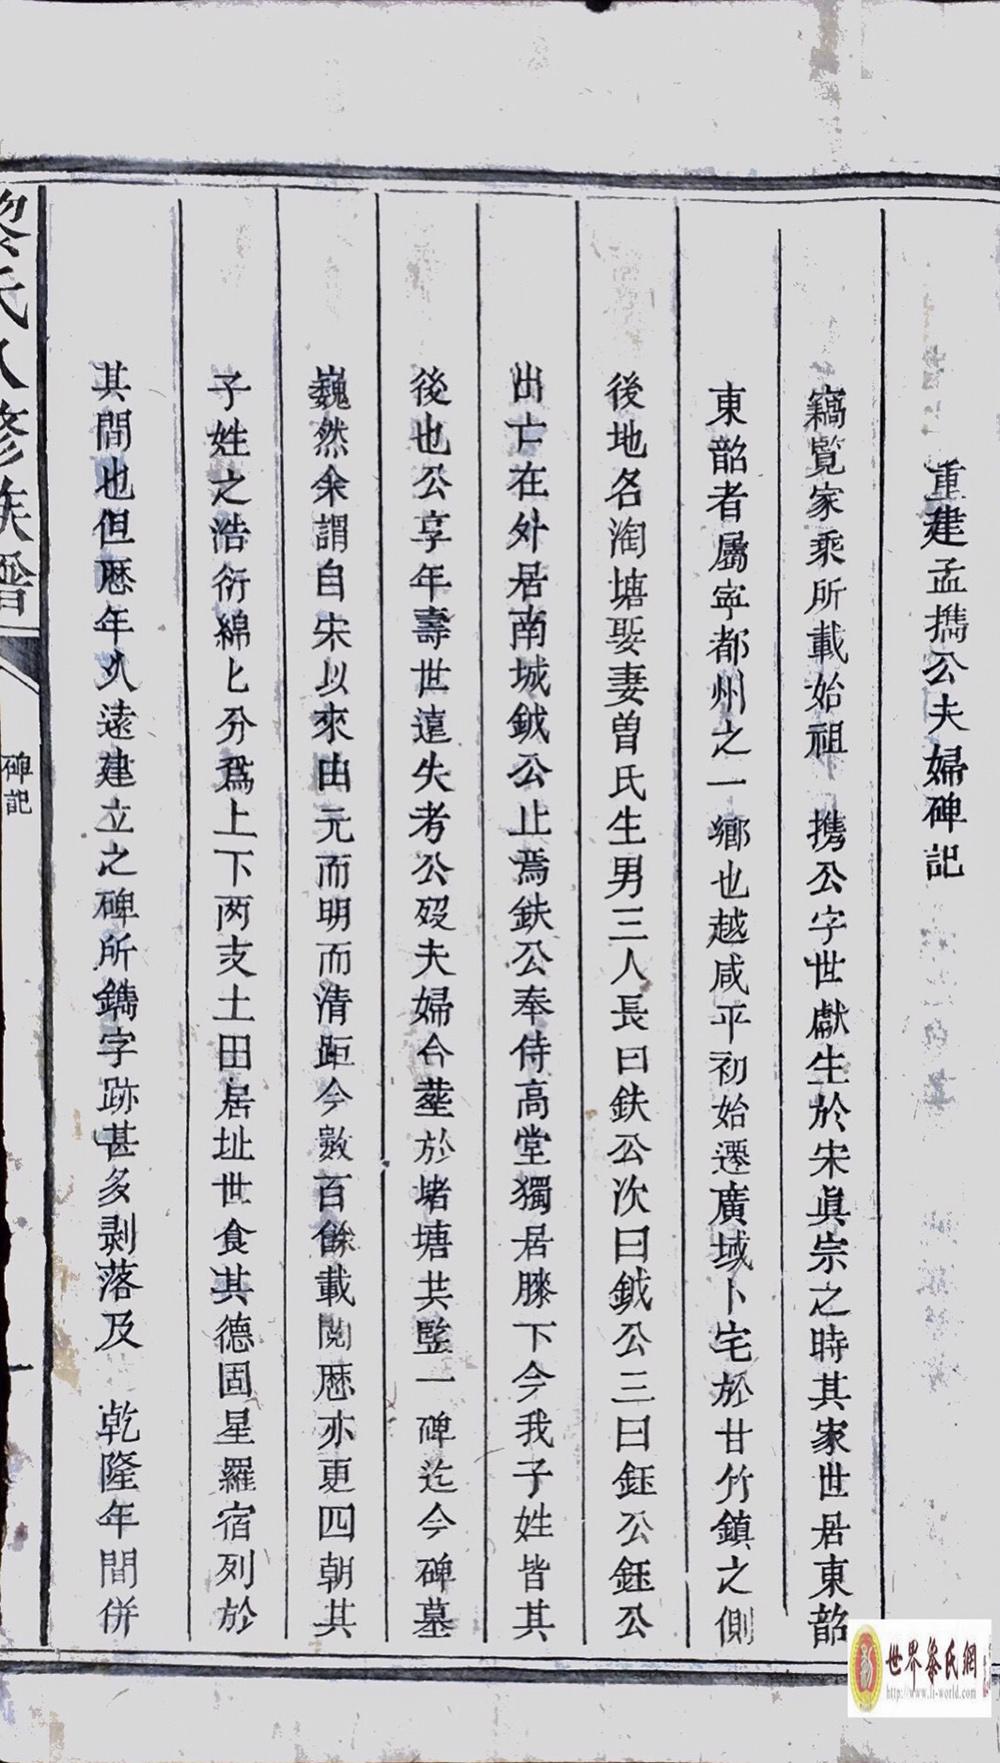 重建孟攜公夫婦碑記
竊覽家乘所載始祖 携公字世獻生於宋眞宗之時其家世居東韶
東韶者屬寜都州之一鄉也越咸平初始遷廣域卜宅於甘竹鎮之側
後地名淘塘娶妻曽氏生男三人長曰鈇公次曰鉞公三曰鈺公鈺公
出亡在外居南城鉞公止焉鈇公奉侍高堂獨居膝下今我子姓皆其
後也公享年壽世遠失考公歿夫婦合塟於堵塘共竪一碑迄今碑墓
巍然余謂自宋以來由元而明而清距今數百餘載閲歴亦更四朝其
子姓之浩衍綿匕分爲上下两支土田居址世食其德固星羅宿列於
其間也但歴年久遠建立之碑所鐫字跡甚多剥落及 乾隆年間併
黎氏八修族譜
碑記
一
世界黎氏網
http://www.li-world.com